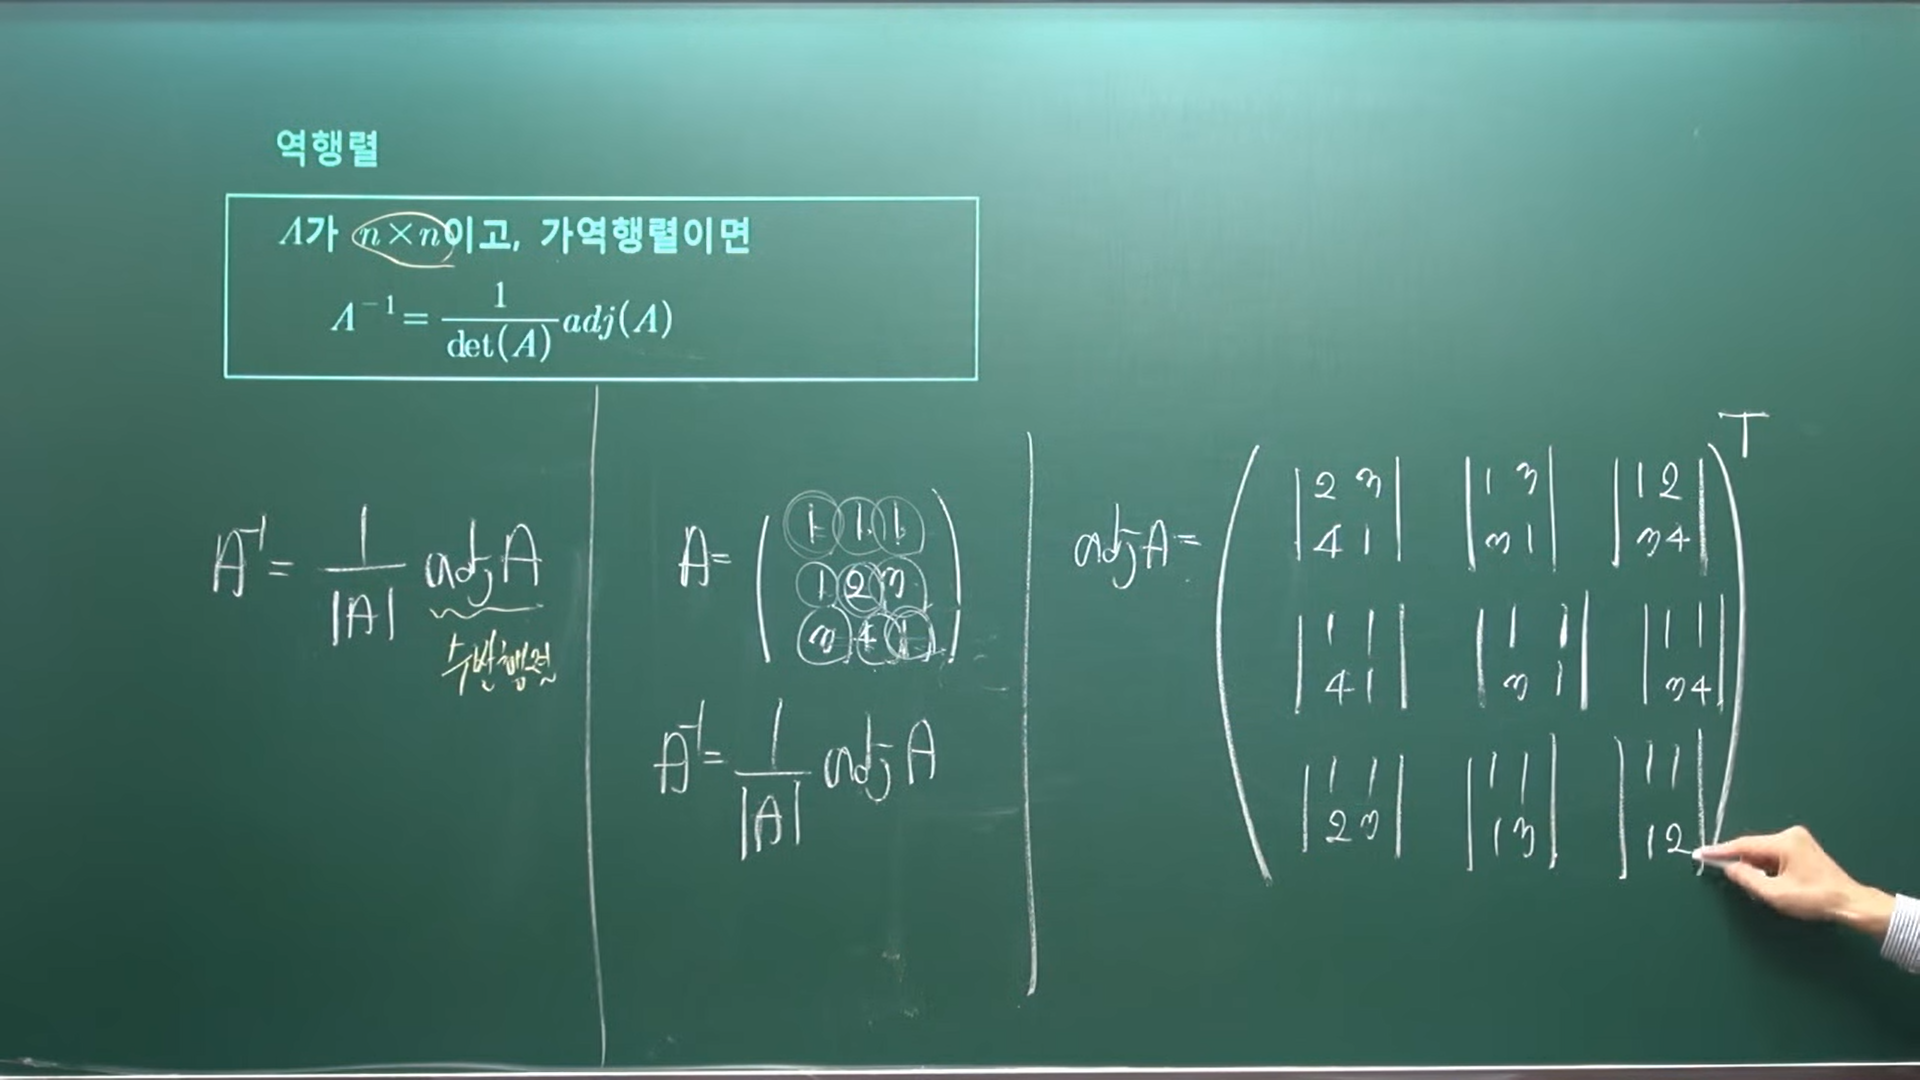 역행렬
A가 n×n이고, 가역행렬이면
A⁻¹ = 1/det(A) adj(A)
A⁻¹ = 1/|A| adj A
수반행렬
A = ( 1 1 1
1 2 3
3 4 1 )
A⁻¹ = 1/|A| adj A
adj A = ( |2 3| |1 3| |1 2| )T
|4 1| |3 1| |3 4|
|1 1| |1 1| |1 1|
|4 1| |3 1| |3 4|
|1 1| |1 1| |1 1|
|2 3| |1 3| |1 2|